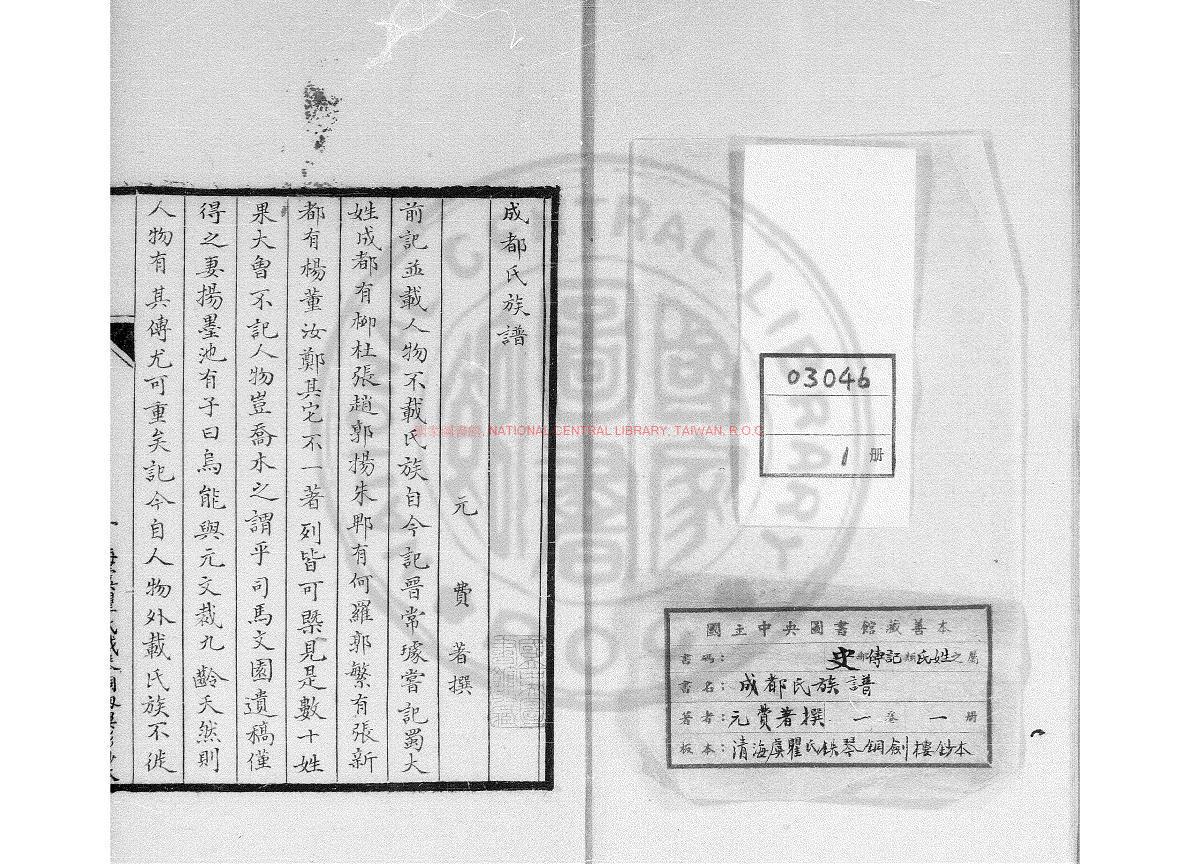 成都氏族譜
元費著撰
前記並載人物不載氏族自今記晉常璩嘗記蜀大
姓成都有柳杜張趙郭楊朱郫有何羅郭繁有張新
都有楊董汝鄭其它不一著列皆可槩見是數十姓
果大魯不記人物豈喬木之謂乎司馬文園遺稿僅
得之妻揚墨池有子曰烏能與元文裁九齡夭然則
人物有其傳尤可重矣記今自人物外載氏族不徙
03046
1 册
國立中央圖書館藏善本
書碼：史部傳記類氏姓之屬
書名：成都氏族譜
著者：元費著撰 一卷 一册
板本：清海虞瞿氏鉄琴銅劍樓鈔本
國家圖書館, NATIONAL CENTRAL LIBRARY, TAIWAN, R.O.C